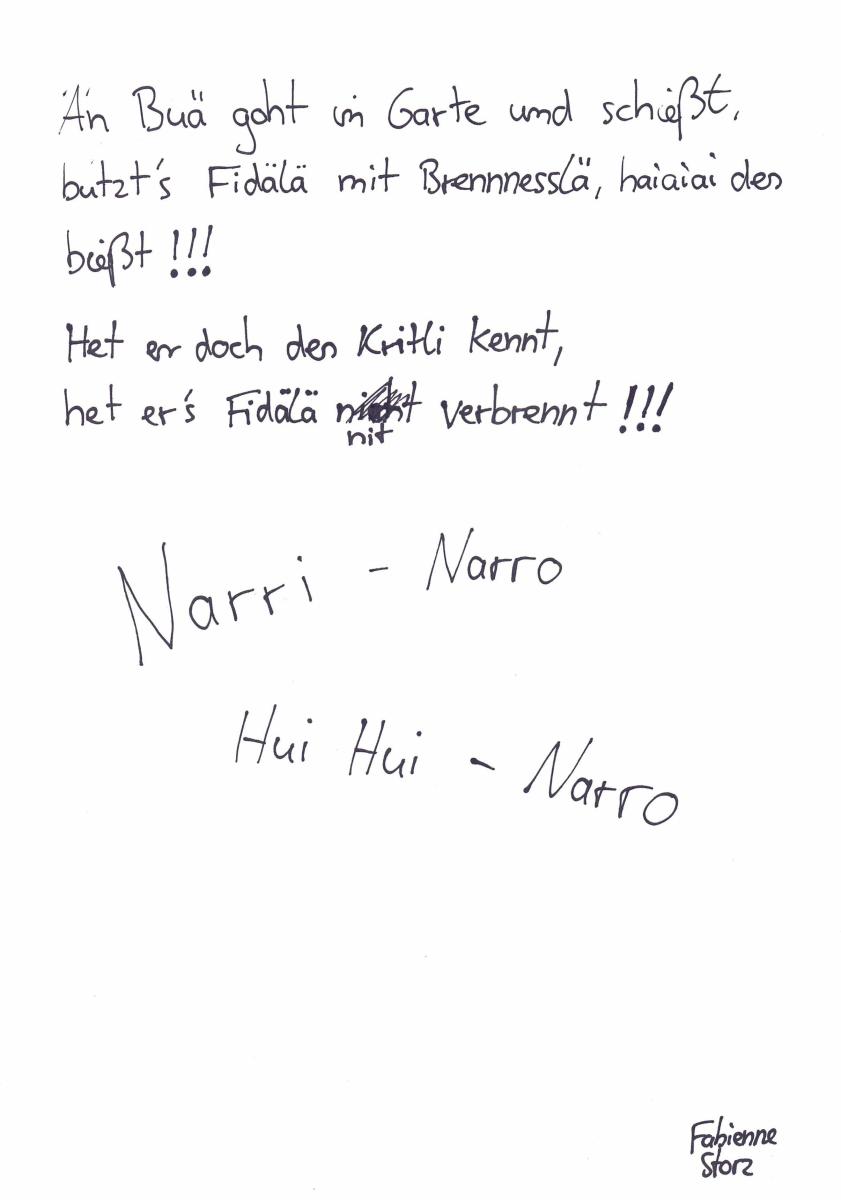 Än Buä goht in Garte und schießt,
butzt's Fidälä mit Brennnesslä, haiaiai des
beißt!!!
Het er doch den Kritli kennt,
het er's Fidälä nit verbrennt!!!
Narri - Narro
Hui Hui - Narro
Fabienne
Storz